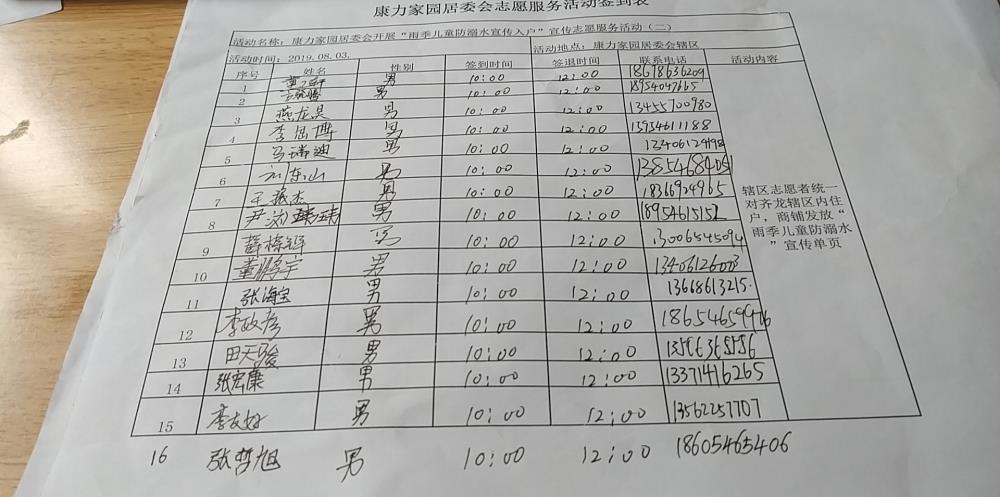 康力家园居委会志愿服务活动签到表
活动名称：康力家园居委会开展“雨季儿童防溺水宣传入户”宣传志愿服务活动（二）
活动时间：2019.08.03. 活动地点：康力家园居委会辖区
序号 姓名 性别 签到时间 签退时间 联系电话 活动内容
1 男 10:00 12:00 18678636209
2 男 10:00 12:00 18954047665
3 燕龙昊 男 10:00 12:00 13455700980
4 李岳博 男 10:00 12:00 13954611188
5 马瑞迪 男 10:00 12:00 13406124198
6 刘东山 男 10:00 12:00
7 王振杰 男 10:00 12:00 18366924965
8 尹 男 10:00 12:00 18954615152
9 薛栋辉 男 10:00 12:00 13006545094
10 董鹏宇 男 10:00 12:00 13406126003
11 张海宝 男 10:00 12:00 13668613215
12 李政彦 男 10:00 12:00
13 田天骏 男 10:00 12:00
14 张宏廉 男 10:00 12:00 13371416265
15 李友好 男 10:00 12:00 13562257707
16 张哲旭 男 10:00 12:00 18605465406
辖区志愿者统一
对齐龙辖区内住
户，商铺发放“
雨季儿童防溺水
”宣传单页